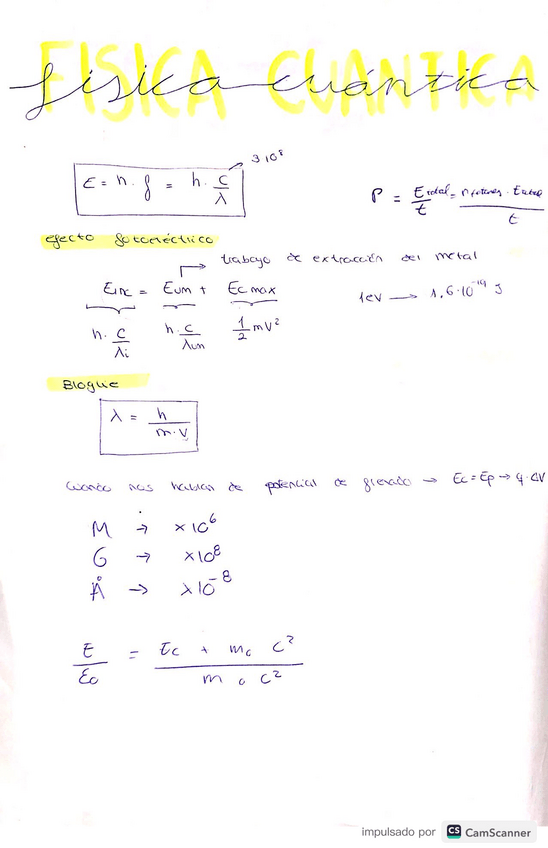 FISICA CUANTICA
fisica cuántica
3·10⁸
E = h · f = h · c/λ
P = Etotal/t = nfotones · Efotón/t
efecto fotoeléctrico
trabajo de extracción del metal
Einc = Eum + Ec max
1eV → 1,6·10⁻¹⁹ J
h · c/λi h · c/λum 1/2 mv²
Blogue
λ = h/m·v
cuando nos hablan de potencial de frenado → Ec = Ep → q · ΔV
M → ×10⁶
G → ×10⁸
Å → ×10⁻⁸
E/E₀ = Ec + m₀ c²/m₀ c²
impulsado por CS CamScanner